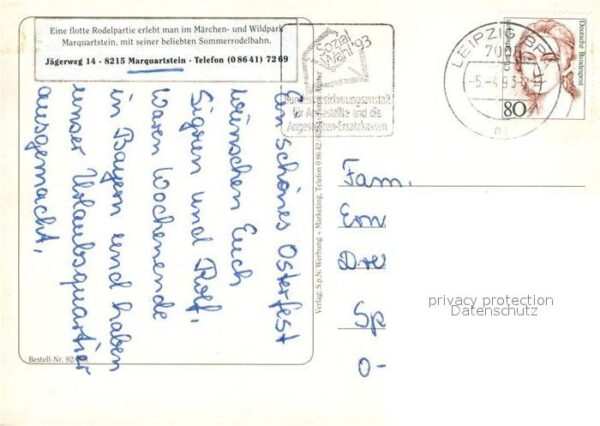 Eine flotte Rodelpartie erlebt man im Märchen- und Wildpark
Marquartstein, mit seiner beliebten Sommerrodelbahn.
Jägerweg 14 - 8215 Marquartstein - Telefon (0 86 41) 72 69
Ein schönes Osterfest
wünschen Euch
Sigrun und Rolf.
Waren Wochenende
in Bayern und haben
unser Urlaubsquartier
ausgemacht.
Bestell-Nr.
Verlag: S.p.N. Werbung + Marketing, Telefon 0 86 42/62
Sozial
Wahl '93
Bundesversicherungsanstalt
für Angestellte und die
Angestellten-Ersatzkassen
LEIPZIG BPA
-5.-4.93
Deutsche Bundespost
80
Fam.
Erw
Dre
Sp
0-
privacy protection
Datenschutz